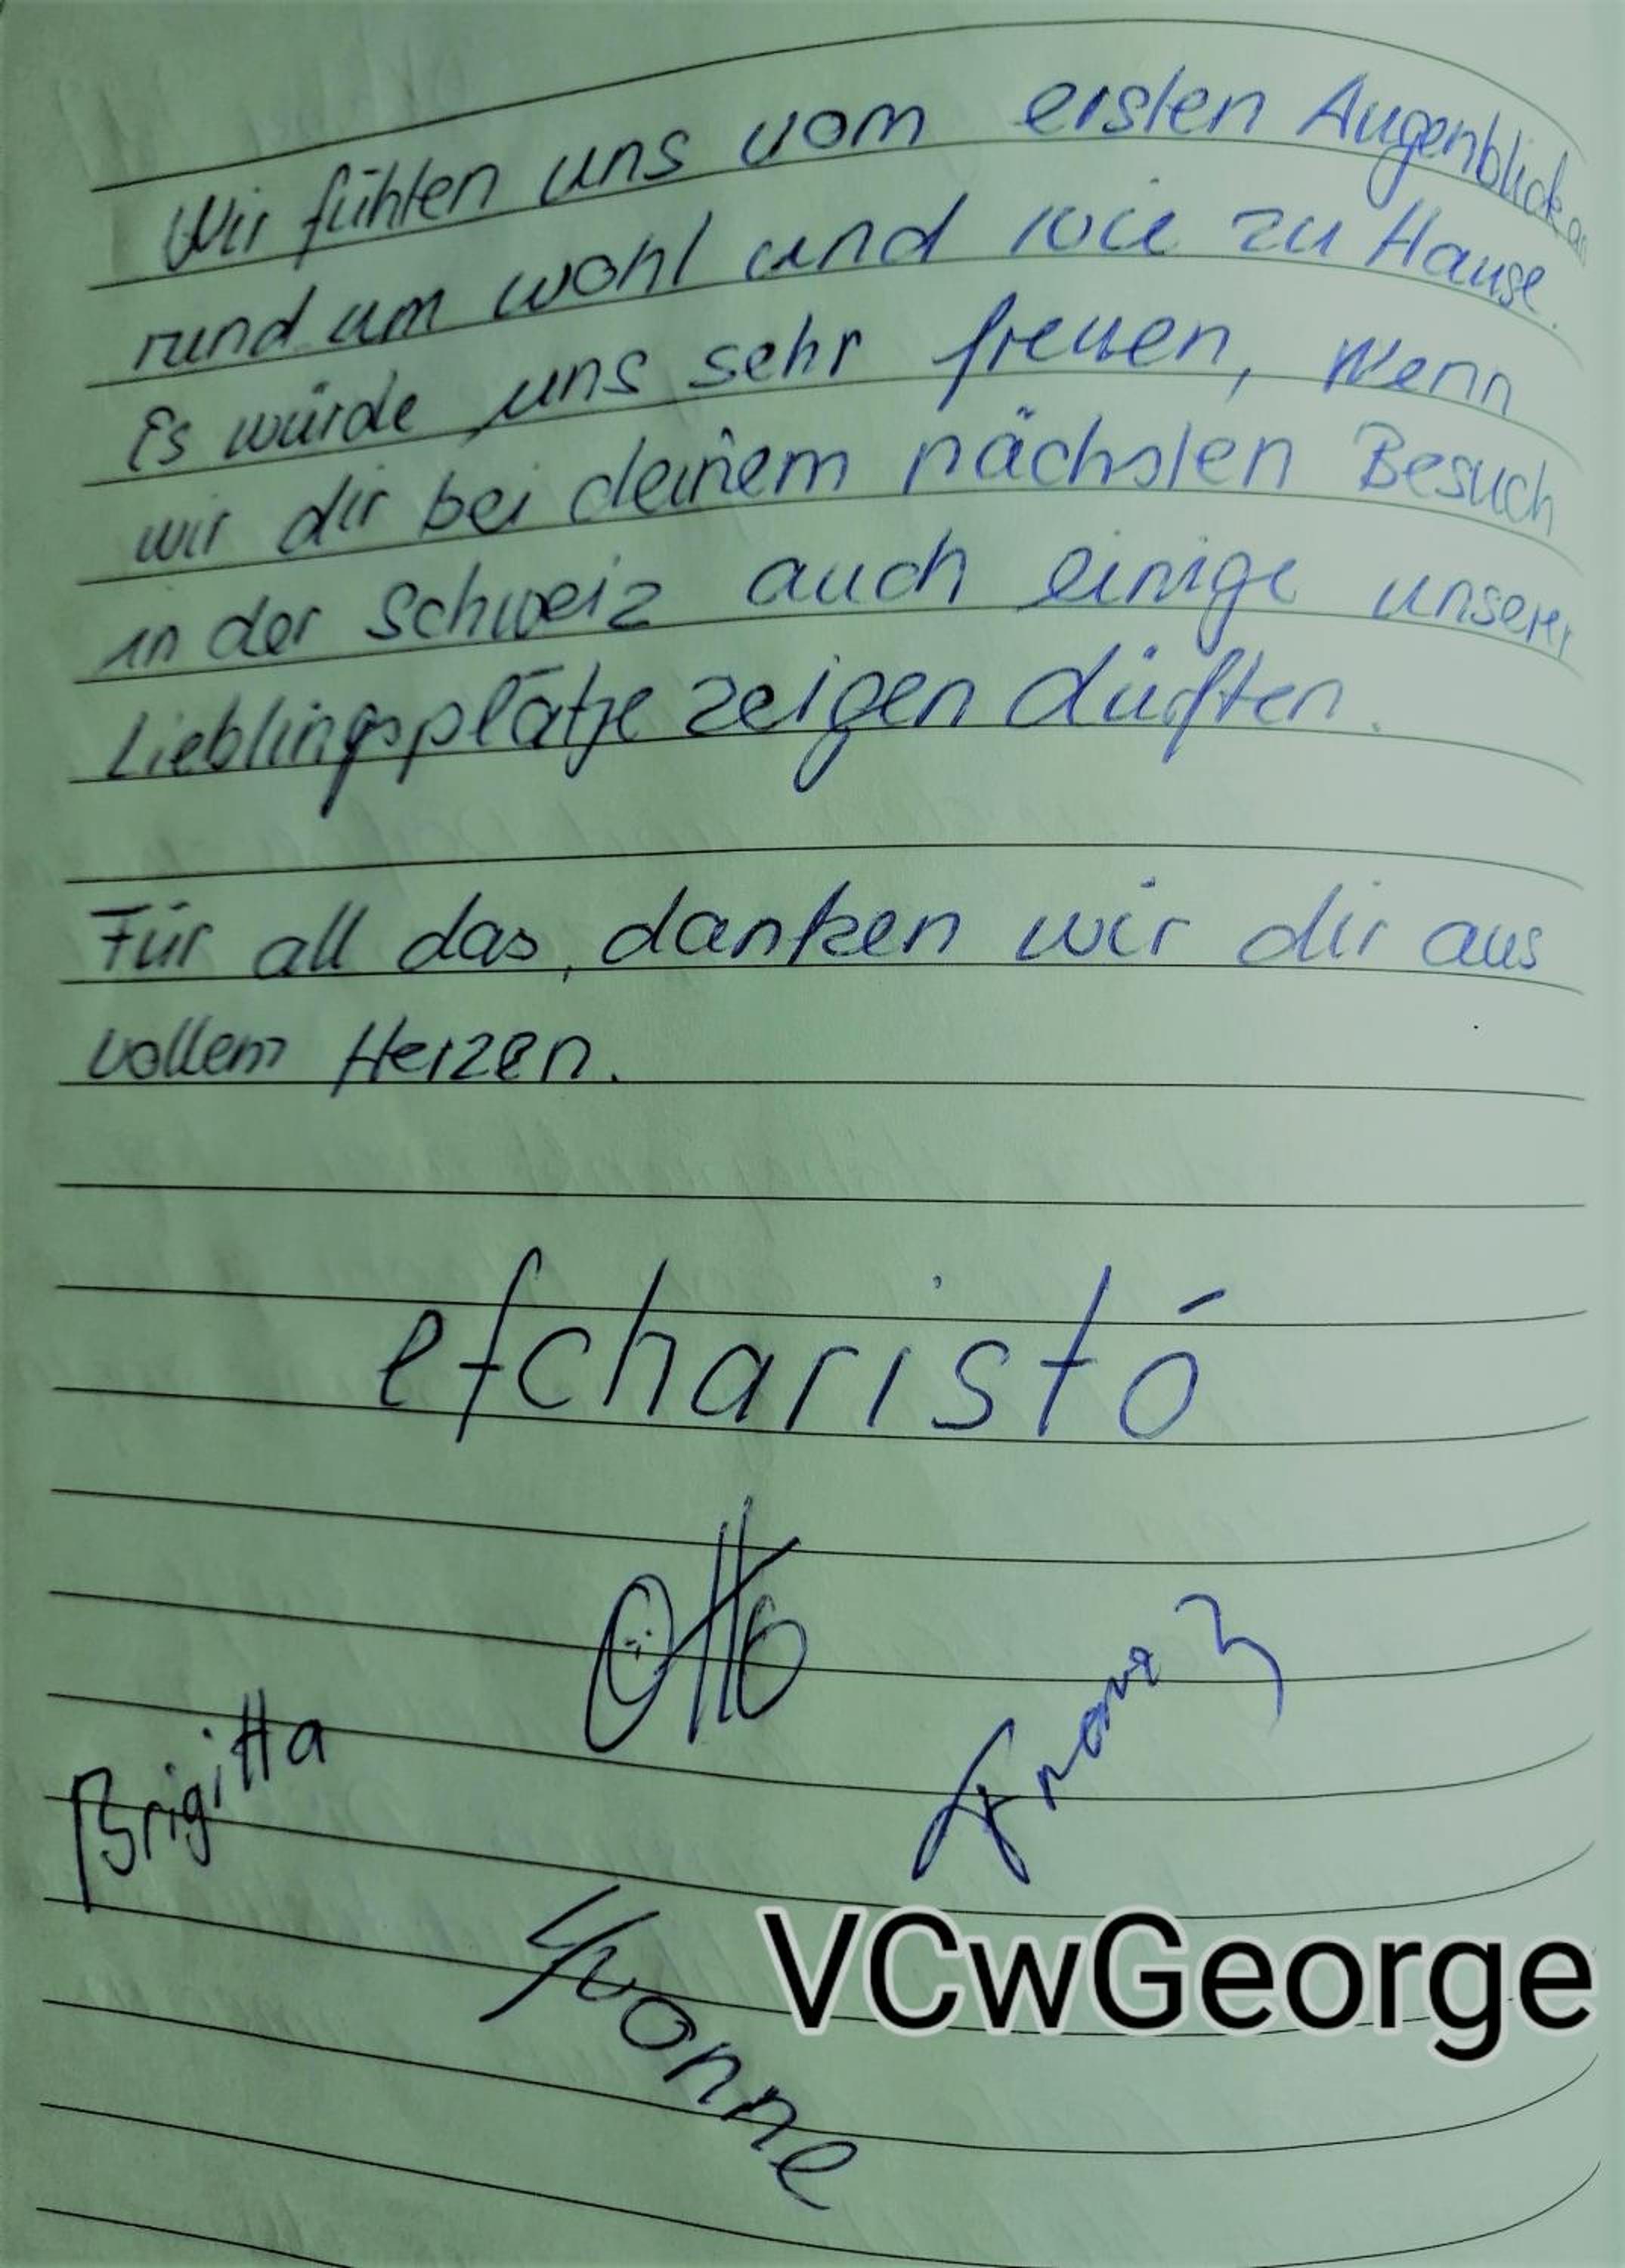 Wir fühlten uns vom ersten Augenblick an
rund um wohl und wie zu Hause.
Es würde uns sehr freuen, wenn
wir dir bei deinem nächsten Besuch
in der Schweiz auch einige unserer
Lieblingsplätze zeigen dürften.
Für all das, danken wir dir aus
vollem Herzen.
efcharistó
Otto
Brigitta
Yvonne
VCwGeorge